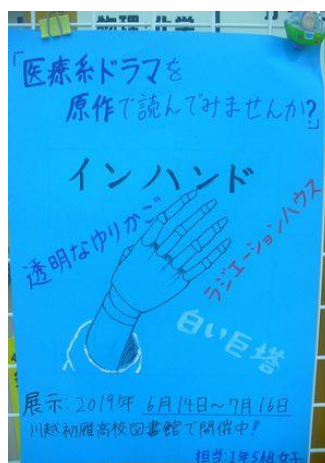 「医療系ドラマを
原作で読んでみませんか?」
インハンド
透明なゆりかご
ラジエーションハウス
白い巨塔
展示:2019年 6月14日~7月16日
川越初雁高校図書館で開催中!
担当:1年5組女子